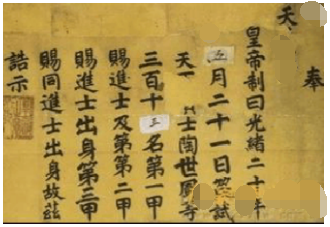 奉
天
皇帝制曰光緒二十年
五月二十一日試
天士陶世鳳等
三百十五名第一甲
賜進士及第第二甲
賜進士出身第三甲
賜同進士出身故茲
誥示